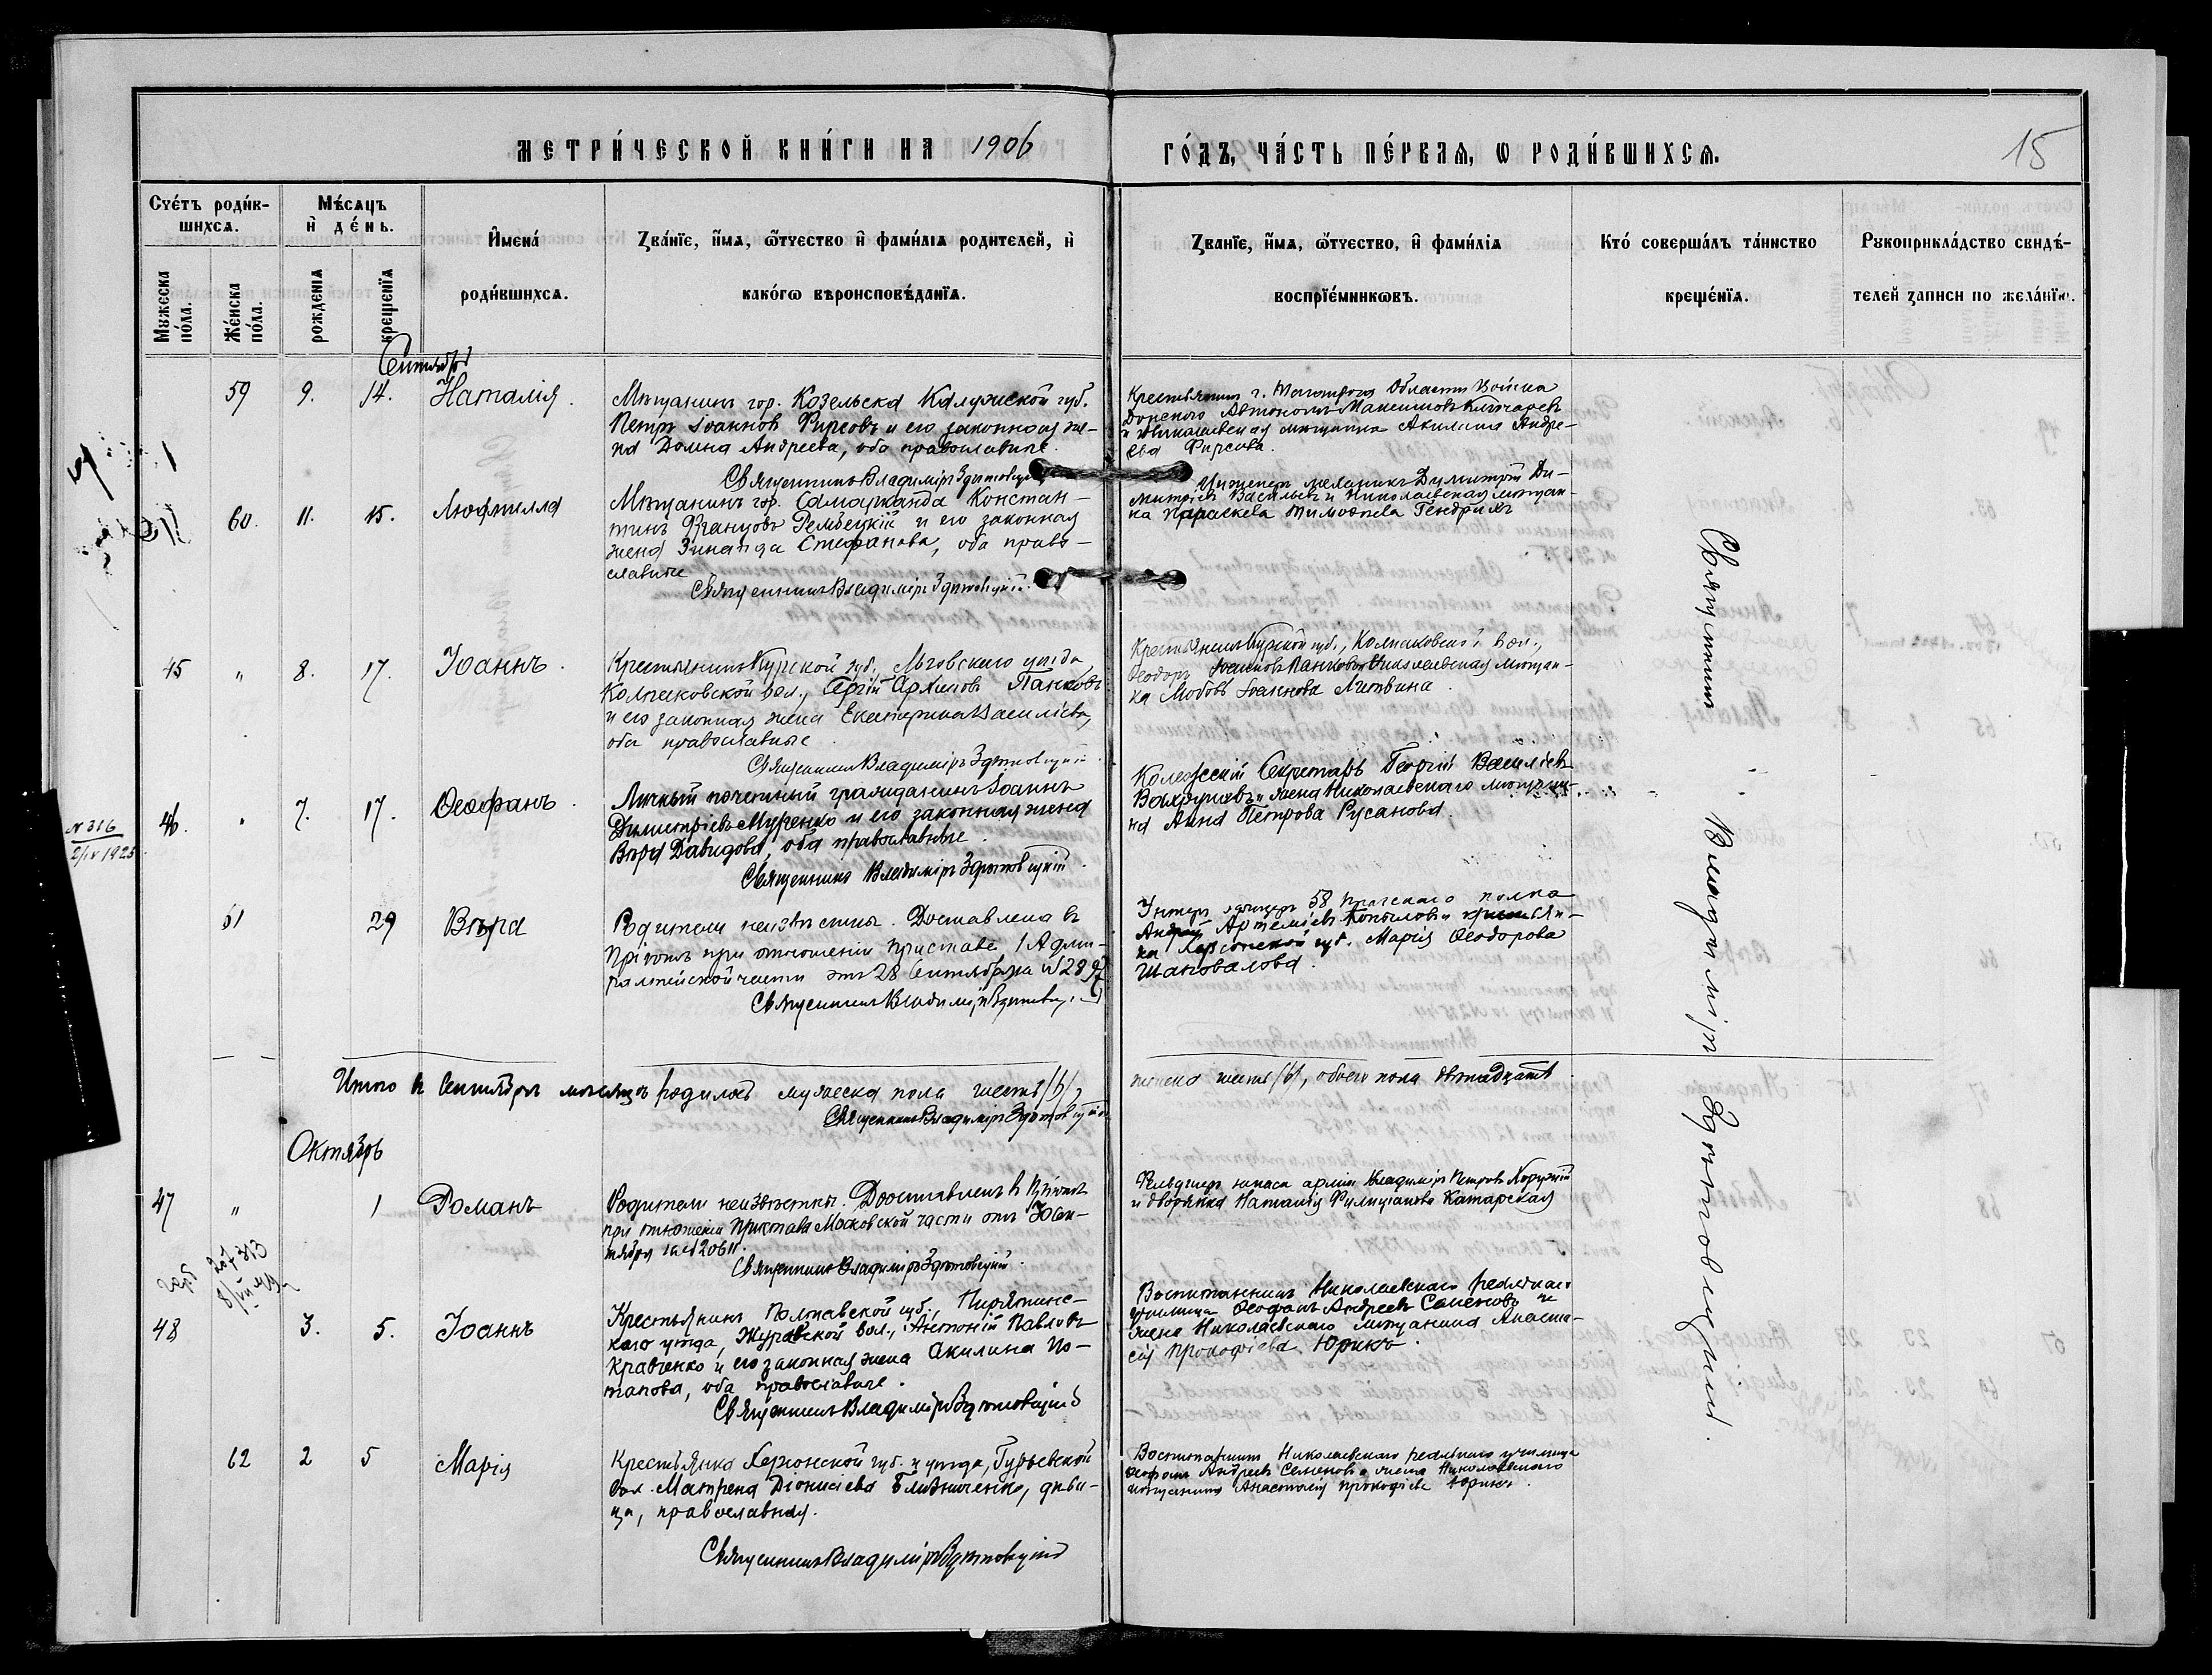 МЕТРИ́ЧЕСКОЙ КНИ́ГИ НА 1906 ГО́ДЪ, ЧА́СТЬ ПЕ́РВАѦ, Ѡ РОДИ́ВШИХСѦ.
15
Сче́тъ роди́в-
шихсѧ.
Мѣ́сѧцъ
и҆ де́нь.
И҆мена́
роди́вшихсѧ.
Зва́нїе, и҆́мѧ, ѻ҆́тчество и҆ фами́лїѧ родителей, и҆
како́гѡ вѣроисповѣ́данїѧ.
Зва́нїе, и҆́мѧ, ѻ҆́тчество, и҆ фами́лїѧ
воспрїе́мникѡвъ.
Кто́ соверша́лъ та́инство
креще́нїѧ.
Рукоприкла́дство свидѣ́-
телей записи по жела́нїю.
Мужеска
по́ла.
Же́нска
по́ла.
рожденїѧ
крещенїѧ
Сентябрь
59 9. 14. Наталія.
Мѣщанинъ гор. Козельска Калужской губ.
Петръ Іоанновъ Фирсовъ и его законная же-
на Домна Андреева, оба православные.
Священникъ Владиміръ
Крестьянинъ г. Таганрога Области Войска
Донского Автономъ Максимовъ Ключаревъ
и Николаевская мѣщанка Акилина Андре-
ева Фирсова.
60. 11. 15. Людмилла
Мѣщанинъ гор. Самарканда Констан-
тинъ Францовъ и его законная
жена Зинаида Стефанова, оба право-
славные
Священникъ Владиміръ Здѣтовецкій.
Инженеръ механикъ Димитрій Ди-
митріевъ Васильевъ и Николаевская мѣщан-
ка Параскева Тимофѣева Гендрихъ
45 " 8. 17. Іоаннъ.
Крестьянинъ Курской губ., Льговскаго уѣзда
Колпаковской вол., Сергій Архиповъ Панковъ
и его законная жена Екатерина Василіева,
оба православные.
Священникъ Владиміръ Здѣтовецкій
Крестьянинъ Курской губ., Колпаковской вол.,
Ѳеодоръ Іоанновъ Панковъ и Николаевская мѣщан-
ка Любовь Іоаннова Литвина.
N 316
2/IV 1925
46. " 7. 17. Ѳеофанъ.
Личный почетный гражданинъ Іоаннъ
Димитріевъ Мураенко и его законная жена
Вѣра Давидова, оба православные.
Священникъ Владиміръ Здѣтовецкій.
Коллежскій Секретарь Георгій Василіевъ
Вахрушевъ и жена Николаевскаго мѣщани-
на Анна Петрова Русанова.
61 29 Вѣра
Родители неизвѣстны. Доставлена въ
Пріютъ при отношеніи Пристава 1 Адми-
ралтейской части отъ 28 Сентября N 2897
Священникъ Владиміръ
Унтеръ офицеръ 58 Прагскаго полка
Андрей Артеміевъ Копыловъ и крестьян-
ка Херсонской губ. Марія Ѳеодорова
Шаповалова.
Итого въ Сентябрѣ мѣсяцѣ родилось мужеска пола шесть /6/, женска шесть /6/, обоего пола двѣнадцать.
Священникъ Владиміръ Здѣтовецкій
Октябрь
47 " 1 Романъ
Родители неизвѣстны. Доставленъ въ Пріютъ
при отношеніи Пристава Московской части отъ 30 Сен-
тября за N 2061.
Священникъ Владиміръ Здѣтовецкій.
Фельдшеръ запаса арміи Владиміръ Петровъ Хоружій
и дворянка Наталія Филиціанова Катарская
48 3. 5. Іоаннъ
Крестьянинъ Полтавской губ., Пирятинс-
каго уѣзда, Журавской вол., Антоній Павловъ
Кравченко и его законная жена Акилина По-
тапова, оба православные.
Священникъ Владиміръ Здѣтовецкій
Воспитанникъ Николаевскаго реальнаго
училища Ѳеофанъ Андреевъ Семеновъ и
жена Николаевскаго мѣщанина Анаста-
сія Прокофіева Юрикъ.
62 2 5 Марія
Крестьянка Херсонской губ. и уѣзда, Гурьевской
вол. Матрена Діонисіева Близниченко, дѣви-
ца, православная.
Священникъ Владиміръ Здѣтовецкій
Воспитанникъ Николаевскаго реальнаго училища
Ѳеофанъ Андреевъ Семеновъ и жена Николаевскаго
мѣщанина Анастасія Прокофіева Юрикъ.
Священникъ Владиміръ Здѣтовецкій.